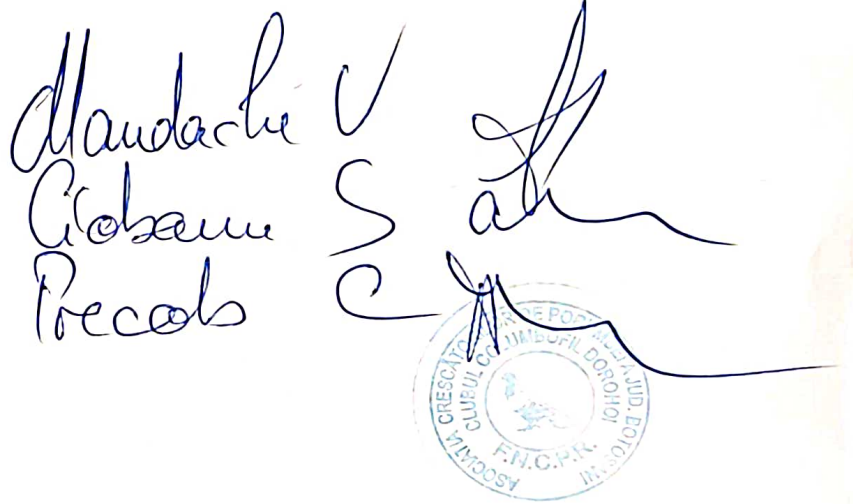 Mandachi V
Ciobanu S
Precob C
ASOCIATIA CRESCATORILOR DE PORUMBEI A JUD. BOTOSANI
CLUBUL COLUMBOFIL DOROHOI
F.N.C.P.R.